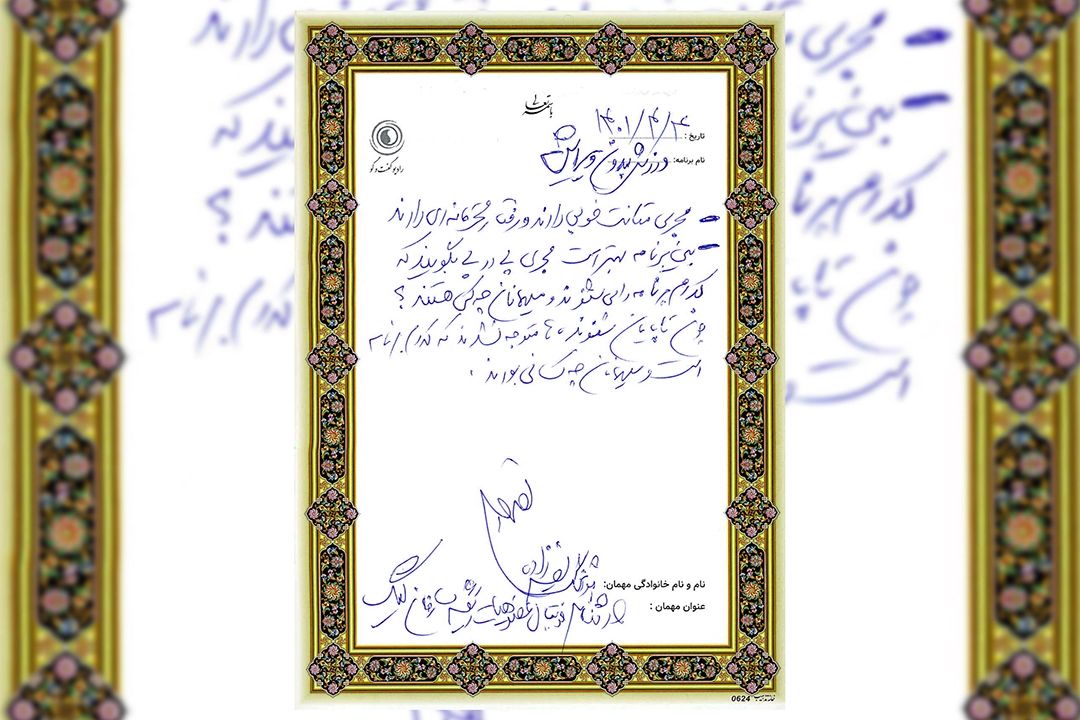 باسمه تعالی
تاریخ : ۱۴۰۱/۴/۴
رادیو گفت و گو
نام برنامه: ورزش بدون ویرایش
- مجری متانت خوبی دارند و رفتار محترمانه‌ای دارند
- بین برنامه بهتر است مجری پی در پی بگویند که
کدام برنامه را می‌شنوند و میهمانان چه کسی هستند؟
چون تا پایان شنونده‌ها متوجه نشدند که کدام برنامه
است و میهمانان چه کسانی بودند.
نام و نام خانوادگی مهمان: زاده
عنوان مهمان : کارشناس فوتبال عضو هیات رئیسه سازمان لیگ
0624